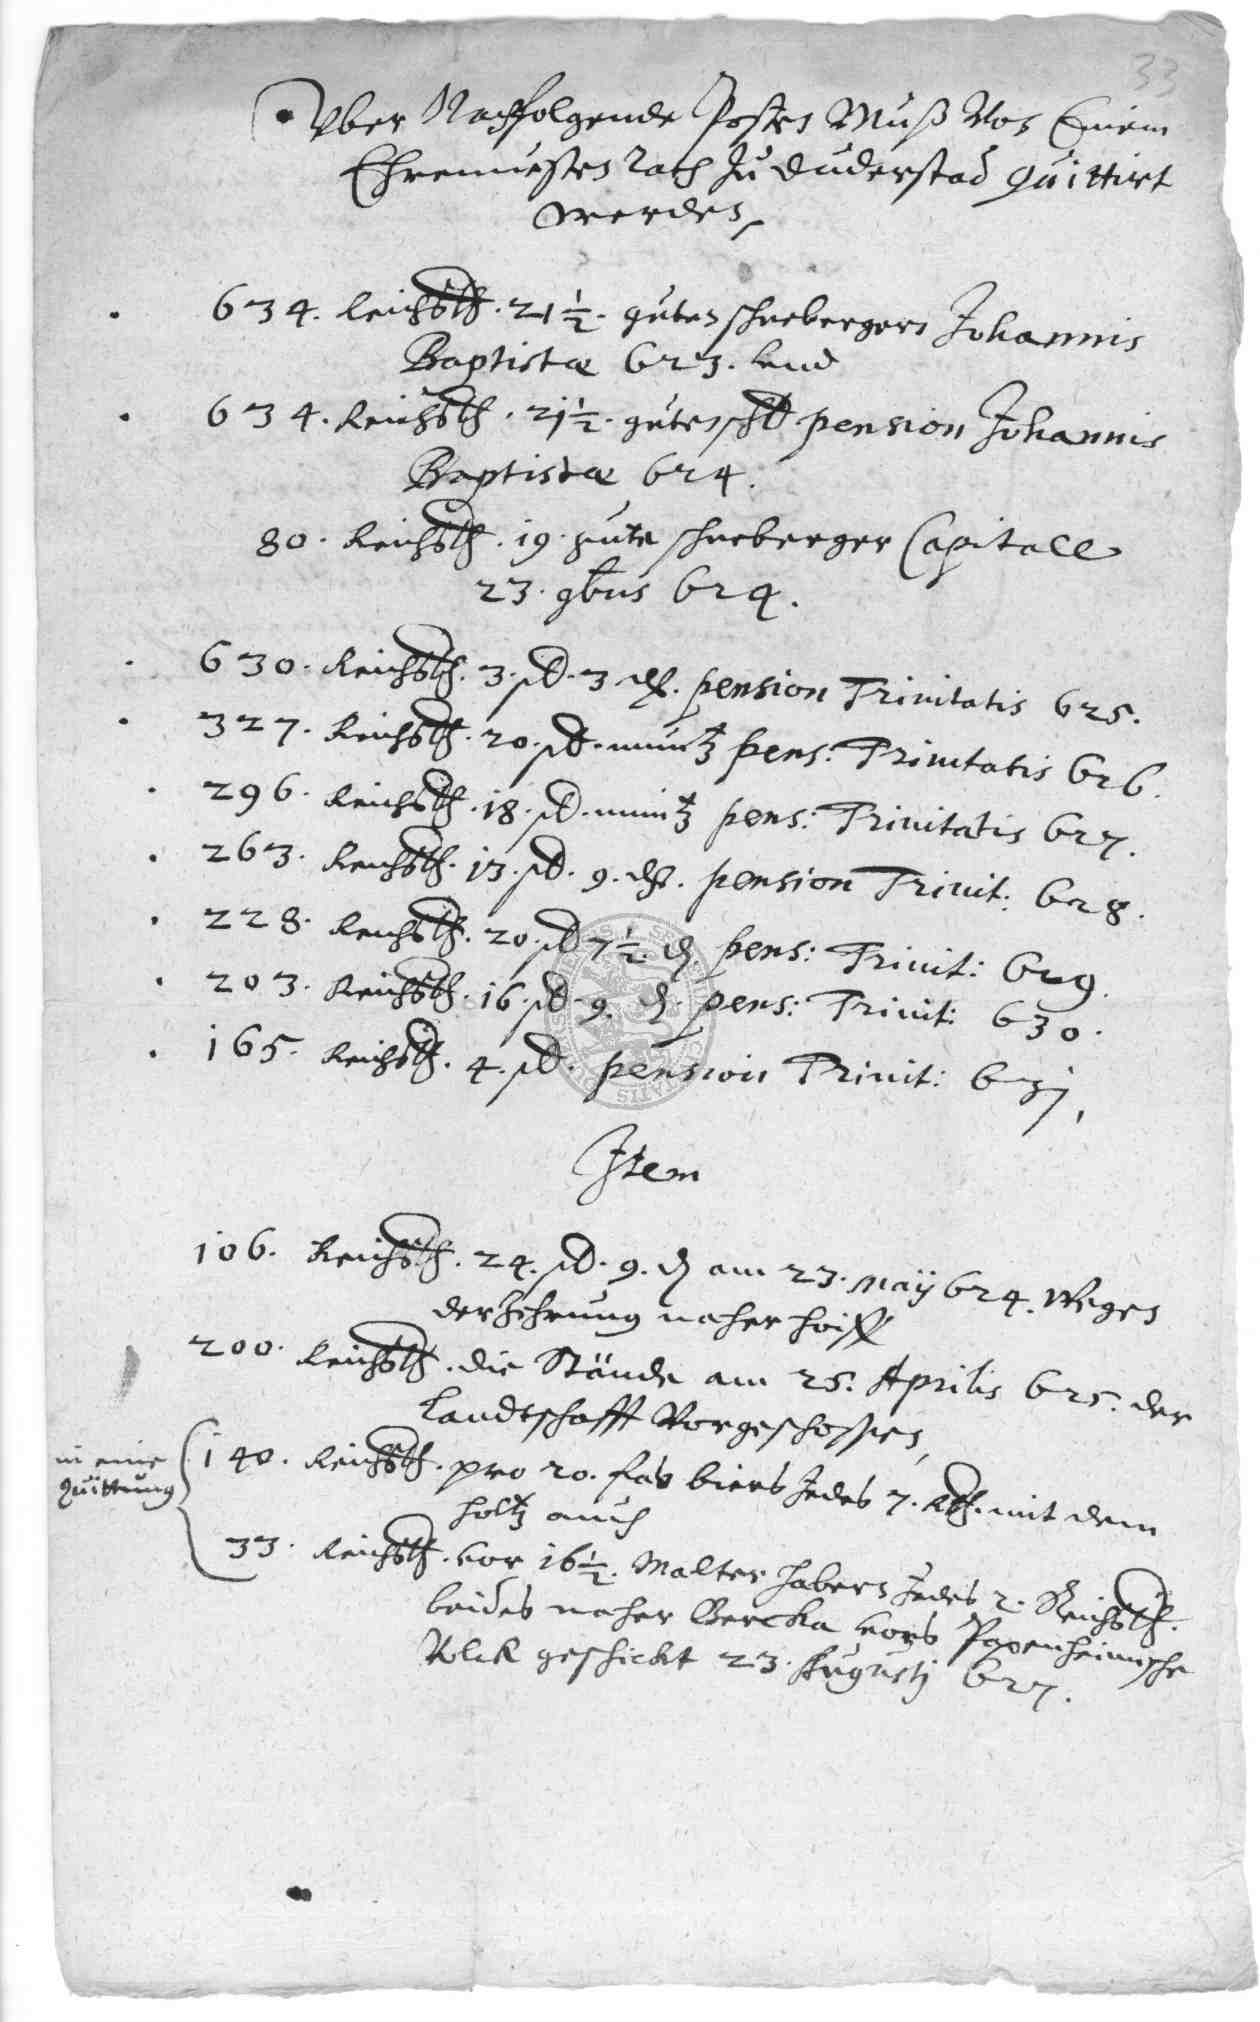 33
Vber Nachfolgende Posten Muß Von Einem
Ehrenuesten Rath Zu Duderstad quittirt
werden,
634. Reichsth. 21½. guten schreberger Johannis
Baptistæ 623.
634. Reichsth. 21½. guten schre pension Johannis
Baptistæ 624.
80. Reichsth. 19. gute schreberger Capitall
23. 9bris 624.
630. Reichsth. 3. sch. 3 d. pension Trinitatis 625.
327. Reichsth. 20. sch. müntz pens: Trinitatis 626.
296. Reichsth. 18. sch. müntz pens: Trinitatis 627.
263. Reichsth. 13. sch. 9. d. pension Trinit: 628.
228. Reichsth. 20. sch 7½. d. pens: Trinit: 629.
203. Reichsth. 16. sch. 9. d. pens: Trinit: 630.
165. Reichsth. 4. sch. pension Trinit: 631,
Item
106. Reichsth. 24. sch. 9. d am 23. Maÿ 624. Wegen
der Zehrung naher
200. Reichsth. die Stände am 25. Aprilis 625. der
Landtschafft Vorgeschossen,
in eine
Quittung
140. Reichsth. pro 20. fas biers Jedes 7. Rth. mit dem
holtz auch
33. Reichsth. vor 16½. Malter habern Jedes 2. Reichsth.
beides naher Bercka vors Papenheimische
Volck geschickt 23. Augustj 627.